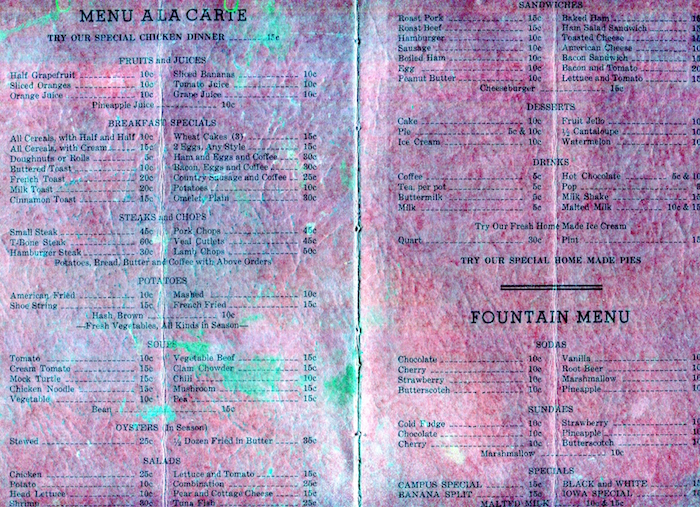 MENU A LA CARTE
TRY OUR SPECIAL CHICKEN DINNER 15c
FRUITS and JUICES
Half Grapefruit 10c Sliced Bananas 10c
Sliced Oranges 10c Tomato Juice 10c
Orange Juice 10c Grape Juice 10c
Pineapple Juice 10c
BREAKFAST SPECIALS
All Cereals, with Half and Half 10c Wheat Cakes (3) 15c
All Cereals, with Cream 15c 2 Eggs, Any Style 15c
Doughnuts or Rolls 5c Ham and Eggs and Coffee 30c
Buttered Toast 10c Bacon, Eggs and Coffee 30c
French Toast 20c Country Sausage and Coffee 25c
Milk Toast 20c Potatoes 10c
Cinnamon Toast 15c Omelet, Plain 30c
STEAKS and CHOPS
Small Steak 45c Pork Chops 45c
T-Bone Steak 60c Veal Cutlets 45c
Hamburger Steak 30c Lamb Chops 50c
Potatoes, Bread, Butter and Coffee with Above Orders
POTATOES
American Fried 10c Mashed 10c
Shoe String 15c French Fried 15c
Hash Brown 10c
—Fresh Vegetables, All Kinds in Season—
SOUPS
Tomato 10c Vegetable Beef 15c
Cream Tomato 15c Clam Chowder 15c
Mock Turtle 15c Chili 15c
Chicken Noodle 15c Mushroom 15c
Vegetable 10c Pea 15c
Bean 15c
OYSTERS (In Season)
Stewed 25c ½ Dozen Fried in Butter 35c
SALADS
Chicken 25c Lettuce and Tomato 15c
Potato 10c Combination 25c
Head Lettuce 10c Pear and Cottage Cheese 15c
Shrimp 30c Tuna Fish 25c
SANDWICHES
Roast Pork 15c Baked Ham
Roast Beef 15c Ham Salad Sandwich
Hamburger 10c Toasted Cheese
Sausage 10c American Cheese
Boiled Ham 10c Bacon Sandwich
Egg 10c Bacon and Tomato
Peanut Butter 10c Lettuce and Tomato
Cheeseburger 15c
DESSERTS
Cake 10c Fruit Jello
Pie 5c & 10c ½ Cantaloupe
Ice Cream 10c Watermelon
DRINKS
Coffee 5c Hot Chocolate 5c &
Tea, per pot 5c Pop
Buttermilk 5c Milk Shake
Milk 5c Malted Milk 10c &
Try Our Fresh Home Made Ice Cream
Quart 30c Pint
TRY OUR SPECIAL HOME MADE PIES
FOUNTAIN MENU
SODAS
Chocolate 10c Vanilla
Cherry 10c Root Beer
Strawberry 10c Marshmallow
Butterscotch 10c Pineapple
SUNDAES
Cold Fudge 10c Strawberry
Chocolate 10c Pineapple
Cherry 10c Butterscotch
Marshmallow 10c
SPECIALS
CAMPUS SPECIAL 15c BLACK and WHITE
BANANA SPLIT 15c IOWA SPECIAL
MALTED MILK 10c & 15c